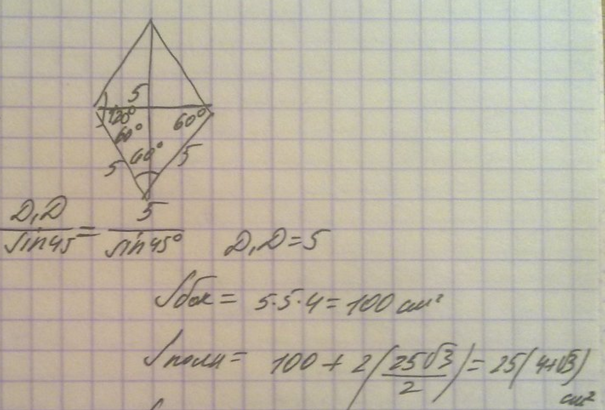 5
120° 60°
60°
60°
5 5
D₁D/sin45 = 5/sin45° D₁D = 5
Sбок = 5·5·4 = 100 см²
Sполн = 100 + 2(25√3/2) = 25(4+√3)
см²